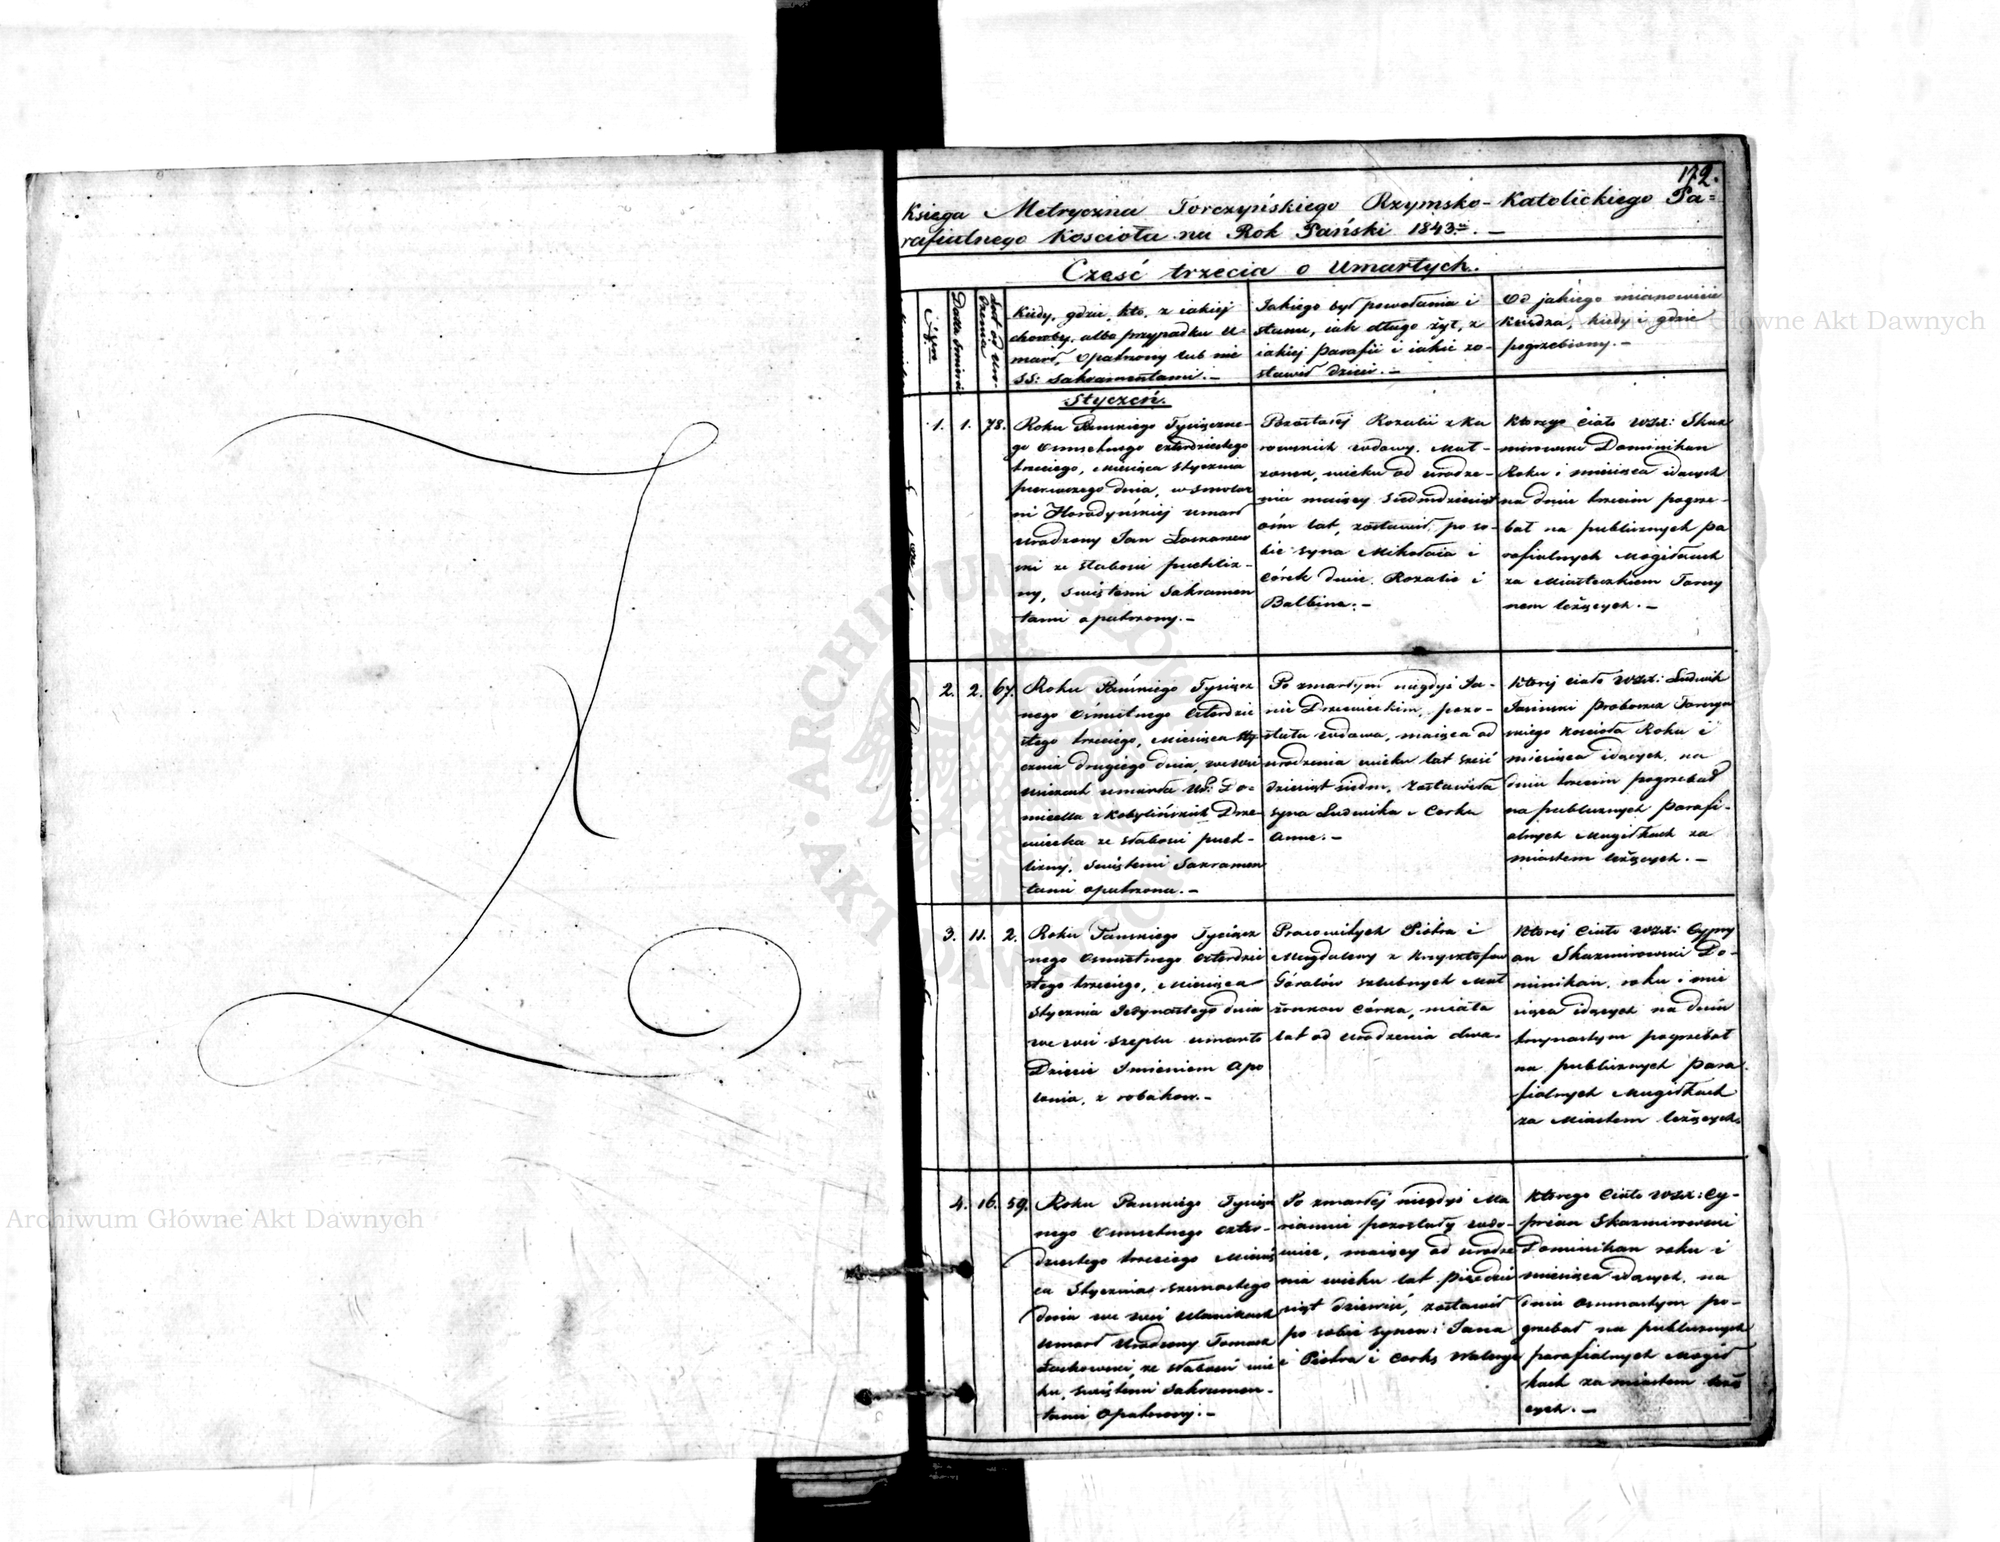 172.
Księga Metryczna Torczyńskiego Rzymsko-Katolickiego Pa=
rafialnego Kościoła na Rok Pański 1843. —
Część trzecia o Umarłych.
Data śmierci
Kiedy, gdzie, kto, z iakiej
choroby, albo przypadku u=
marł, opatrzony lub nie
SS: Sakramentami. —
Jakiego był powołania i
stanu, iak długo żył, z
iakiej Parafii i iakie zo-
stawił dzieci. —
Od jakiego mianowicie
Księdza, kiedy i gdzie
pogrzebiony. —
Styczeń.
1. 1. 78.
Roku Pańskiego Tysiączne-
go ośmsetnego czterdziestego
trzeciego, Miesiąca Stycznia
pierwszego dnia, w
umarł
Urodzony Jan
ze słabości puchli-
ny, Świętemi Sakramen
tami opatrzony. —
Pozostałej Rozalii z Ka
wdowy. Mał-
żonek, wieku od urodze-
nia maiący siedmdziesiąt
ośm lat, zostawił, po so-
bie syna Mikołaia i
Córek dwie, Rozalie i
Balbine. —
Którego Ciało WJX:
Dominikan
Roku i miesiąca idących
na dniu trzecim pogrze-
bał na publicznych pa
rafialnych Mogiłkach
za Miasteczkiem Torczy
nem leżących. —
2. 2. 67.
Roku Pańskiego Tysiącz
nego Ośmsetnego Czterdzie
stego trzeciego, Miesiąca Sty
cznia drugiego dnia, we wsi
umarła
z Kobylińskich Drze-
wiecka ze słabości puch-
liny, Świętemi Sakramen
tami opatrzona. —
Po zmarłym niegdyś Ja-
nie Drzewieckim, pozo-
stała wdowa, maiąca od
urodzenia wieku lat sześć
dziesiąt siedm, zostawiła
syna Ludwika i Corke
Anne. —
Której ciało WJX: Ludwik
Jasinski Proboszcz Torczyń
skiego Kościoła Roku i
miesiąca idących, na
dniu trzecim pogrzebał
na publicznych Parafi-
alnych Mogiłkach za
miastem leżących. —
3. 11. 2.
Roku Pańskiego Tysiącz
nego Ośmsetnego Czterdzie
stego trzeciego, Miesiąca
Stycznia Jedynastego dnia
we wsi Szeplu umarło
Dziecie Imieniem Apo
lonia, z robaków. —
Pracowitych Piotra i
Magdaleny z Krzysztofów
Góralów szlubnych Mał
żonkow Córka, miała
lat od urodzenia dwa.
Ktorej Ciało WJX: Cypry
an Skazmirowski Do-
minikan, roku i mie
siąca idących na dniu
trzynastym pogrzebał
na publicznych Para
fialnych Mogiłkach
za Miastem leżących.
4. 16. 59.
Roku Pańskiego Tysiącz
nego Ośmsetnego czter-
dziestego trzeciego Miesią
ca Stycznia szesnastego
dnia we wsi Ulanikach
umarł Urodzony Tomasz
ze słabości wie
ku, świętemi Sakramen-
tami opatrzony. —
Po zmarłej niegdyś Ma
riannie pozostały wdo-
wiec, maiący od urodze
nia wieku lat pięćdzie
siąt dziewięć, zostawił
po sobie synów: Jana
i Piotra i Corkę
Którego Ciało WJX: Cy-
prian Skazmirowski
Dominikan roku i
miesiąca idących, na
dniu osmnastym po-
grzebał na publicznych
parafialnych Mogił
kach za miastem leżą
cych. —
Archiwum Główne Akt Dawnych
Archiwum Główne Akt Dawnych